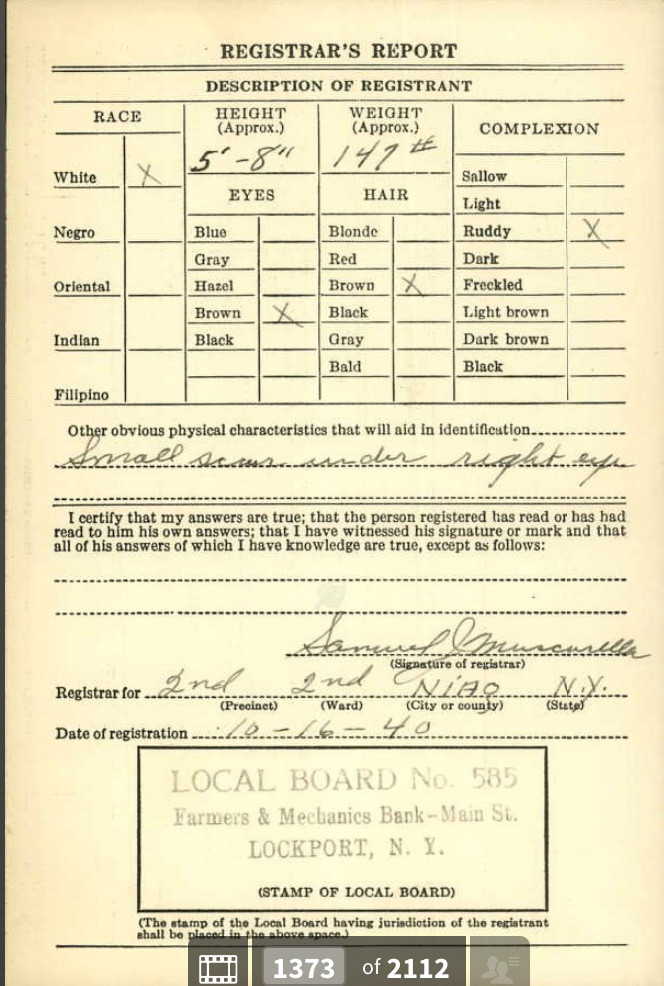 REGISTRAR'S REPORT
DESCRIPTION OF REGISTRANT
RACE
HEIGHT
(Approx.)
WEIGHT
(Approx.)
COMPLEXION
5' - 8"
147 #
White X
EYES
HAIR
Sallow
Light
Negro
Blue
Blonde
Ruddy X
Gray
Red
Dark
Oriental
Hazel
Brown X
Freckled
Brown X
Black
Light brown
Indian
Black
Gray
Dark brown
Bald
Black
Filipino
Other obvious physical characteristics that will aid in identification
Small scar under right eye
I certify that my answers are true; that the person registered has read or has had
read to him his own answers; that I have witnessed his signature or mark and that
all of his answers of which I have knowledge are true, except as follows:
Samuel J Muscarella
(Signature of registrar)
Registrar for 2nd 2nd Niag N.Y.
(Precinct) (Ward) (City or county) (State)
Date of registration 10-16-40
LOCAL BOARD No. 585
Farmers & Mechanics Bank-Main St.
LOCKPORT, N. Y.
(STAMP OF LOCAL BOARD)
(The stamp of the Local Board having jurisdiction of the registrant
shall be placed in the above space.)
1373 of 2112